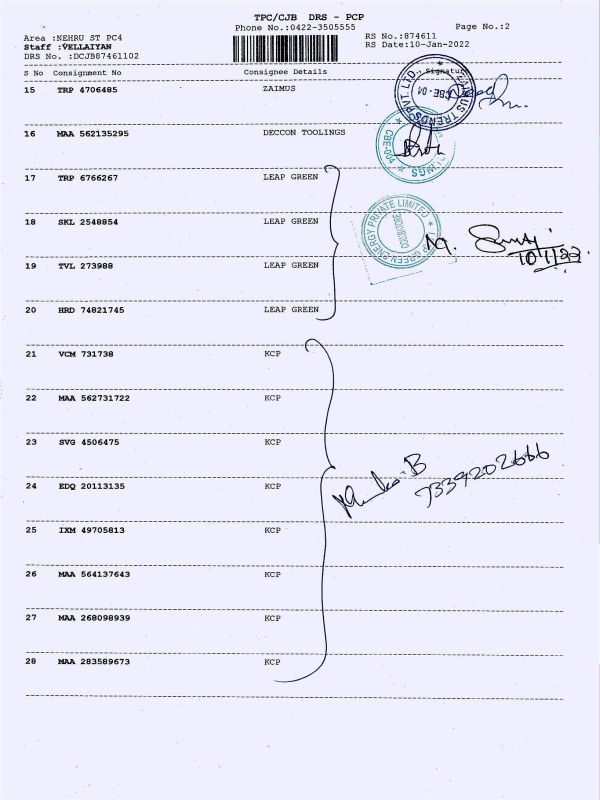 TPC/CJB DRS - PCP
Phone No.:0422-3505555
Page No.:2
Area :NEHRU ST PC4
Staff :VELLAIYAN
DRS No. :DCJB87461102
RS No.:874611
RS Date:10-Jan-2022
S No Consignment No Consignee Details Signature
15 TRP 4706485 ZAIMUS
ZAIMUS TRENDS PVT. LTD.
CBE-04
16 MAA 562135295 DECCON TOOLINGS
17 TRP 6766267 LEAP GREEN
18 SKL 2548854 LEAP GREEN
GREEN ENERGY PRIVATE LIMITED
COIMBATORE
10/1/22
19 TVL 273988 LEAP GREEN
20 HRD 74821745 LEAP GREEN
21 VCM 731738 KCP
22 MAA 562731722 KCP
23 SVG 4506475 KCP
7339202666
24 EDQ 20113135 KCP
25 IXM 49705813 KCP
26 MAA 564137643 KCP
27 MAA 268098939 KCP
28 MAA 283589673 KCP